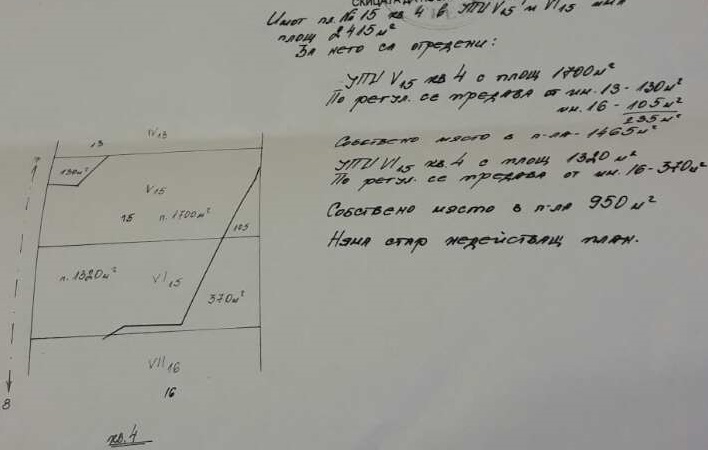 Имот пл. № 15 кв 4 в УПИ V15 и VI15 има
площ 2415 м²
За него са отредени:
УПИ V15 кв 4 с площ 1700 м²
По регул. се предава от им. 13 - 130 м²
им. 16 - 105 м²
235 м²
Собствено място в п-ла - 1465 м²
УПИ VI15 кв. 4 с площ 1320 м²
По регул. се предава от им. 16 - 370 м²
Собствено място в п-ла 950 м²
Няма стар недействащ план.
13
IV13
130 м²
V15
15 п. 1700 м²
105
п. 1320 м²
VI15
370 м²
VII16
16
8
кв. 4